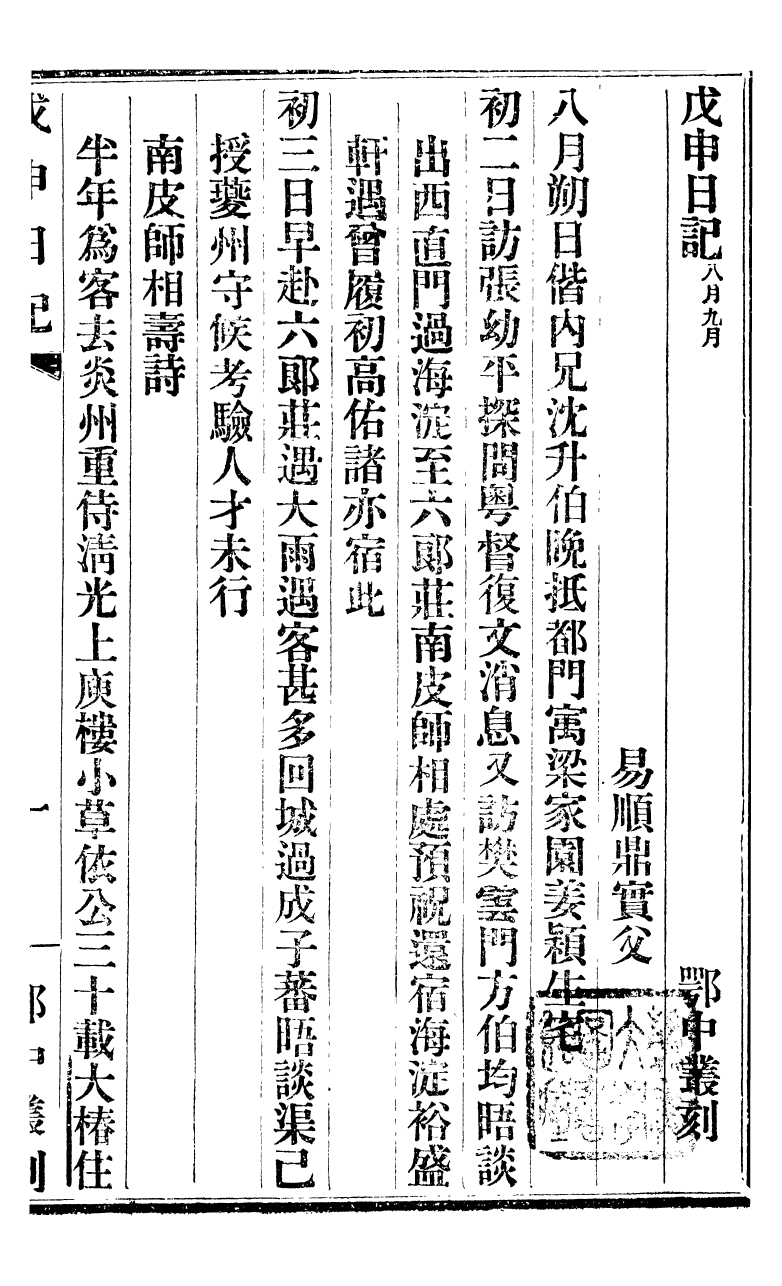 戊申日記八月九月　鄂中叢刻
易順鼎實父
八月朔日偕內兄沈升伯晚抵都門寓梁家園姜穎生宅
初二日訪張幼平探問粵督復文消息又訪樊雲門方伯均晤談
出西直門過海淀至六郞莊南皮師相處預祝還宿海淀裕盛
軒遇曾履初高佑諸亦宿此
初三日早赴六郞莊遇大雨遇客甚多回城過成子蕃晤談渠已
授夔州守候考驗人才未行
南皮師相壽詩
半年爲客去炎州重侍淸光上庾樓小草依公三十載大椿住
戊申日記　一　鄂中叢刻